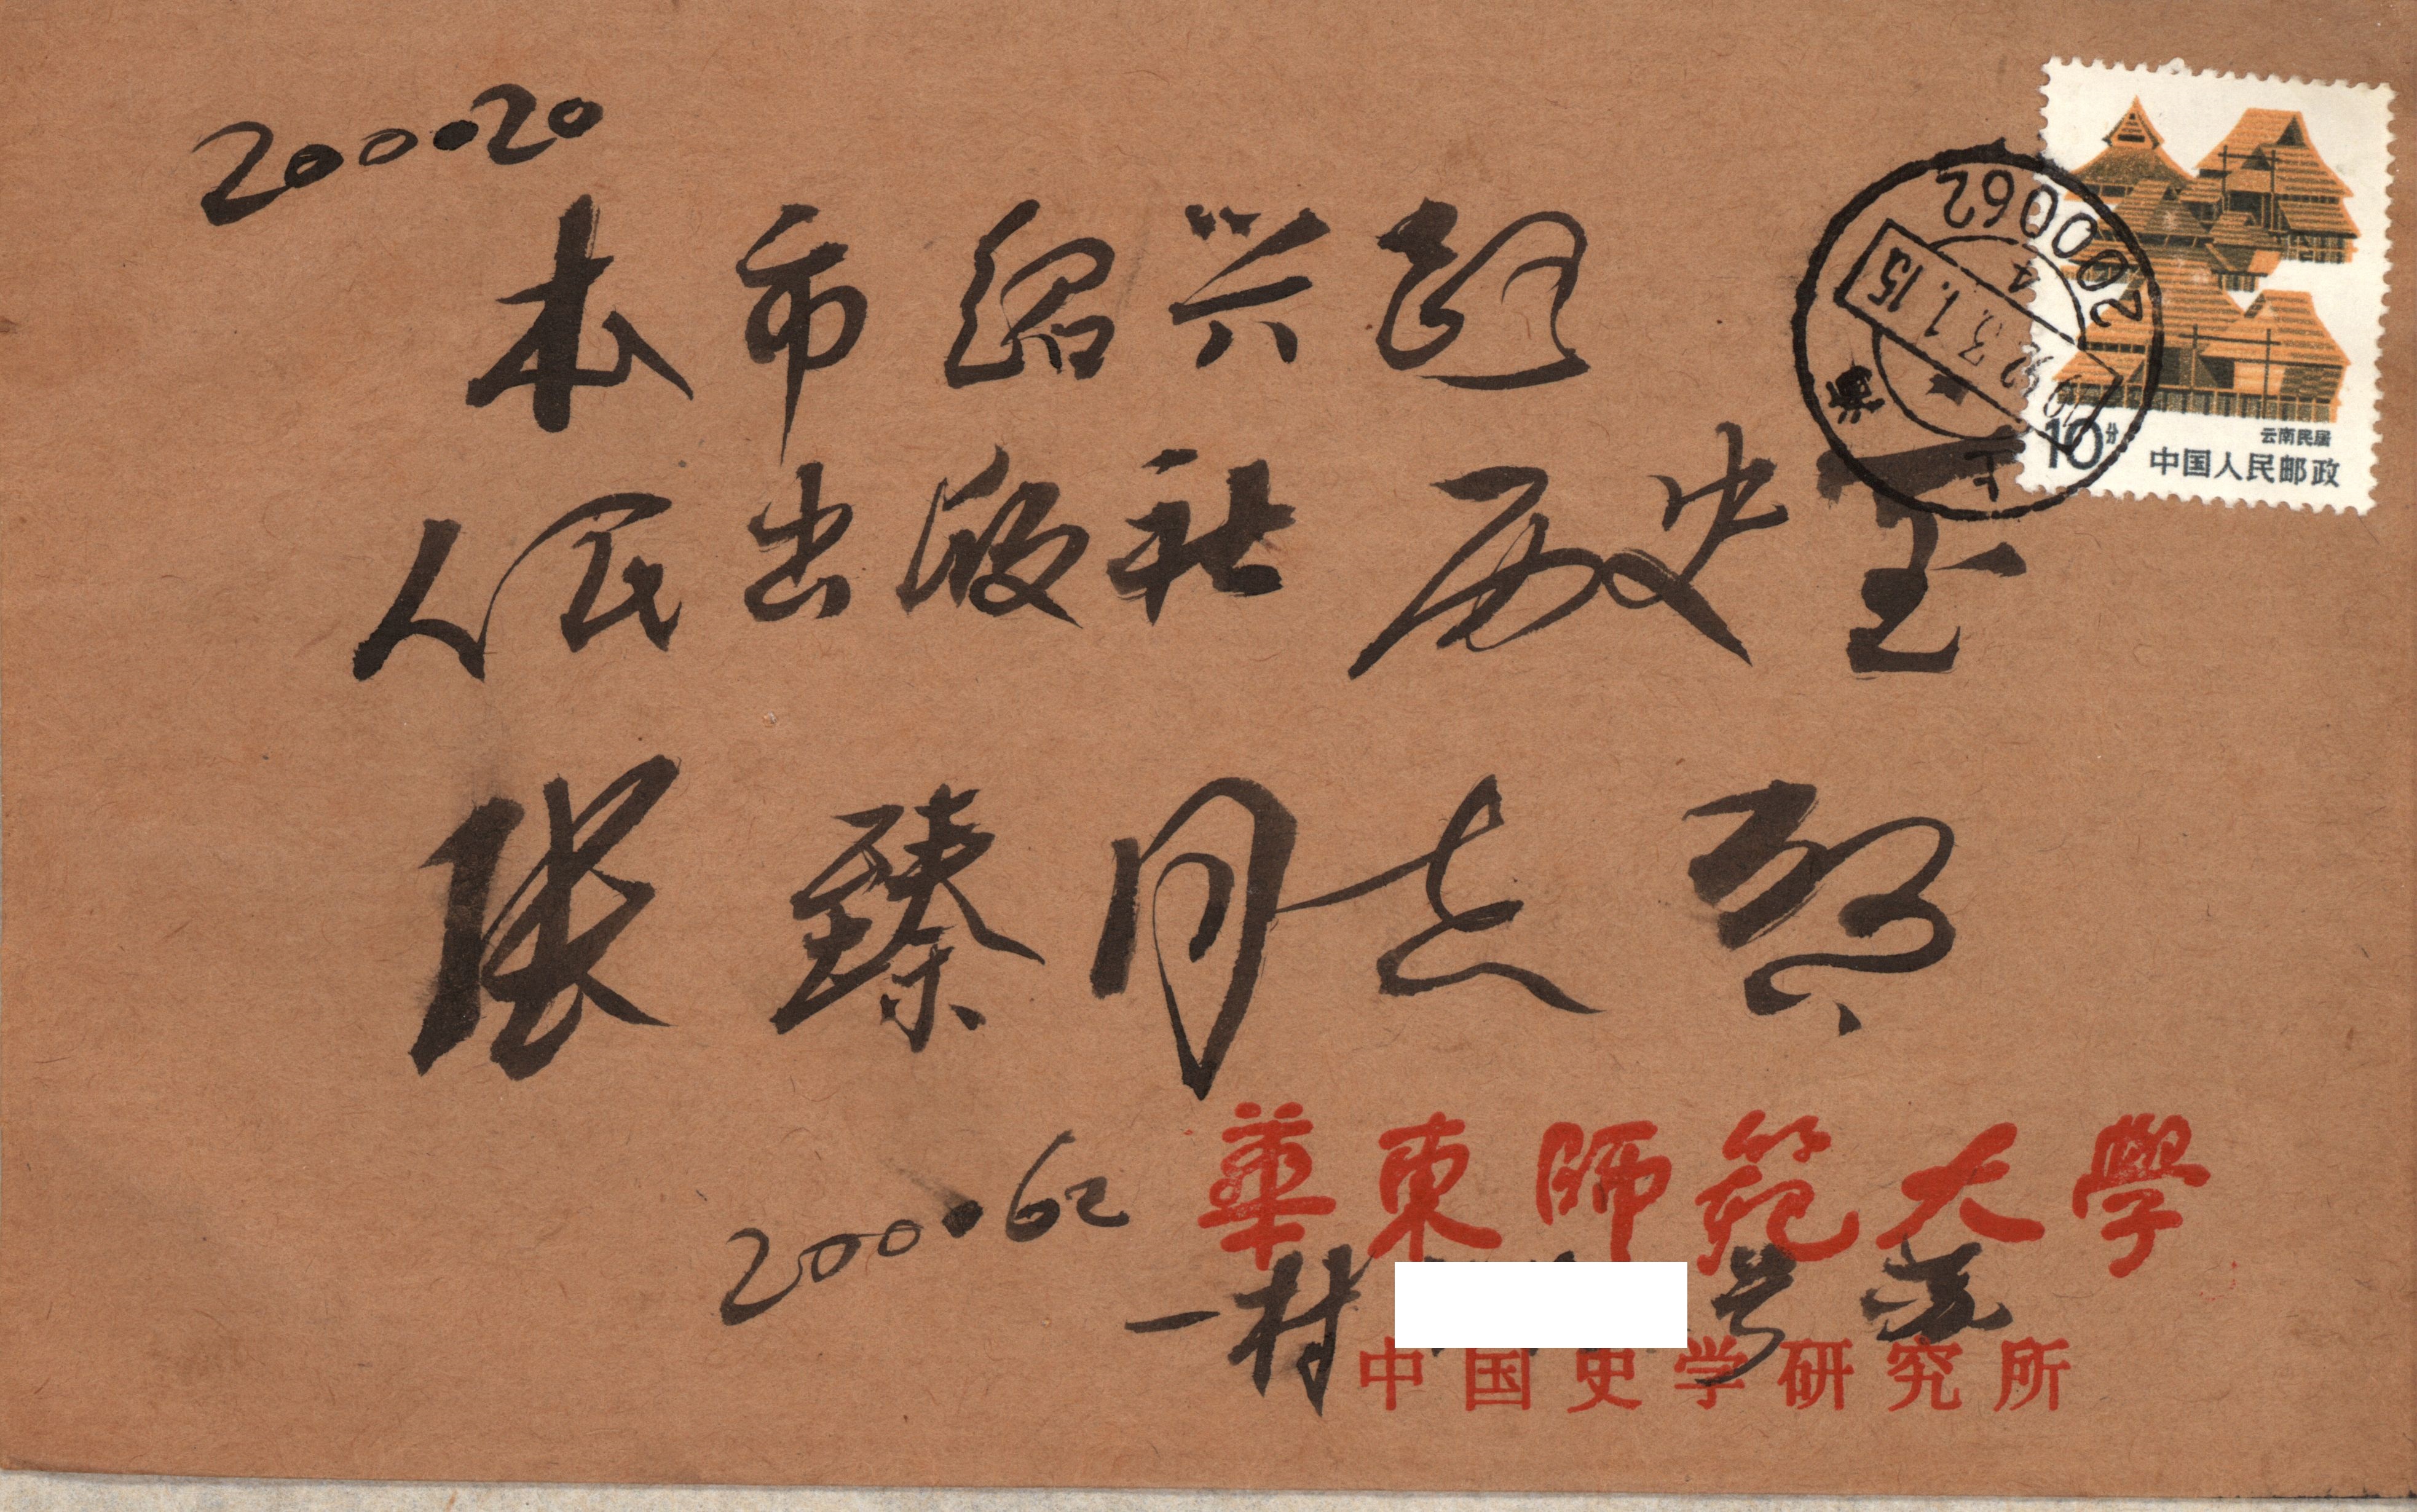 200020
本市绍兴路
人民出版社 历史室
张臻同志启
200062 華東師範大學
一村 号 苏
中国史学研究所
200062
4
1992.3.1.15
上海
10分
云南民居
中国人民邮政